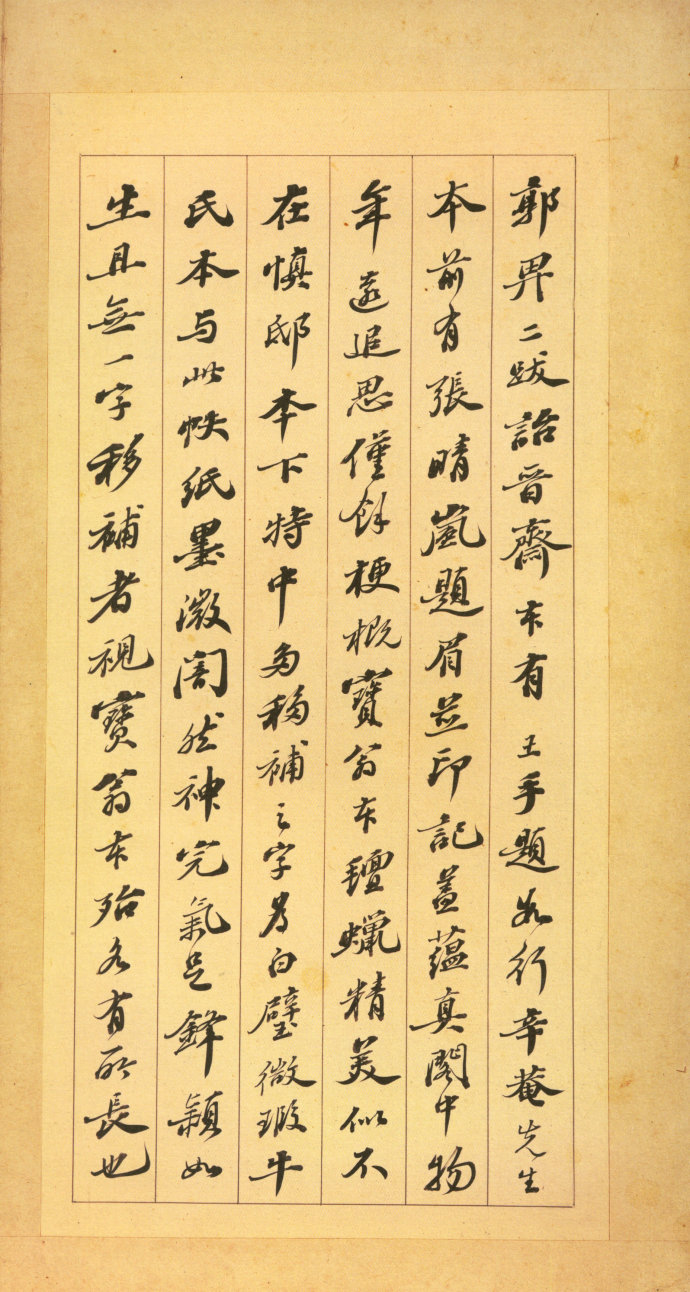 郭畀二跋詒晉齋本有王手題如行辛菴先生
本前有張晴嵐題眉并印記蓋蘊真閣中物
年遠追思僅餘梗概寶翁本氊蠟精美似不
在慎邸本下特中多移補之字為白璧微瑕牛
氏本与此帙紙墨澂闇然神完氣足鋒穎如
生且無一字移補者視寶翁本殆各有所長也